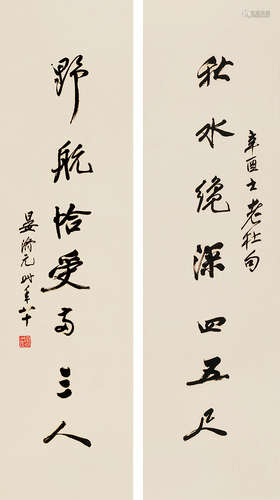 辛酉书老杜句
秋水纔深四五尺
野航恰受両三人
晏济元时年八十